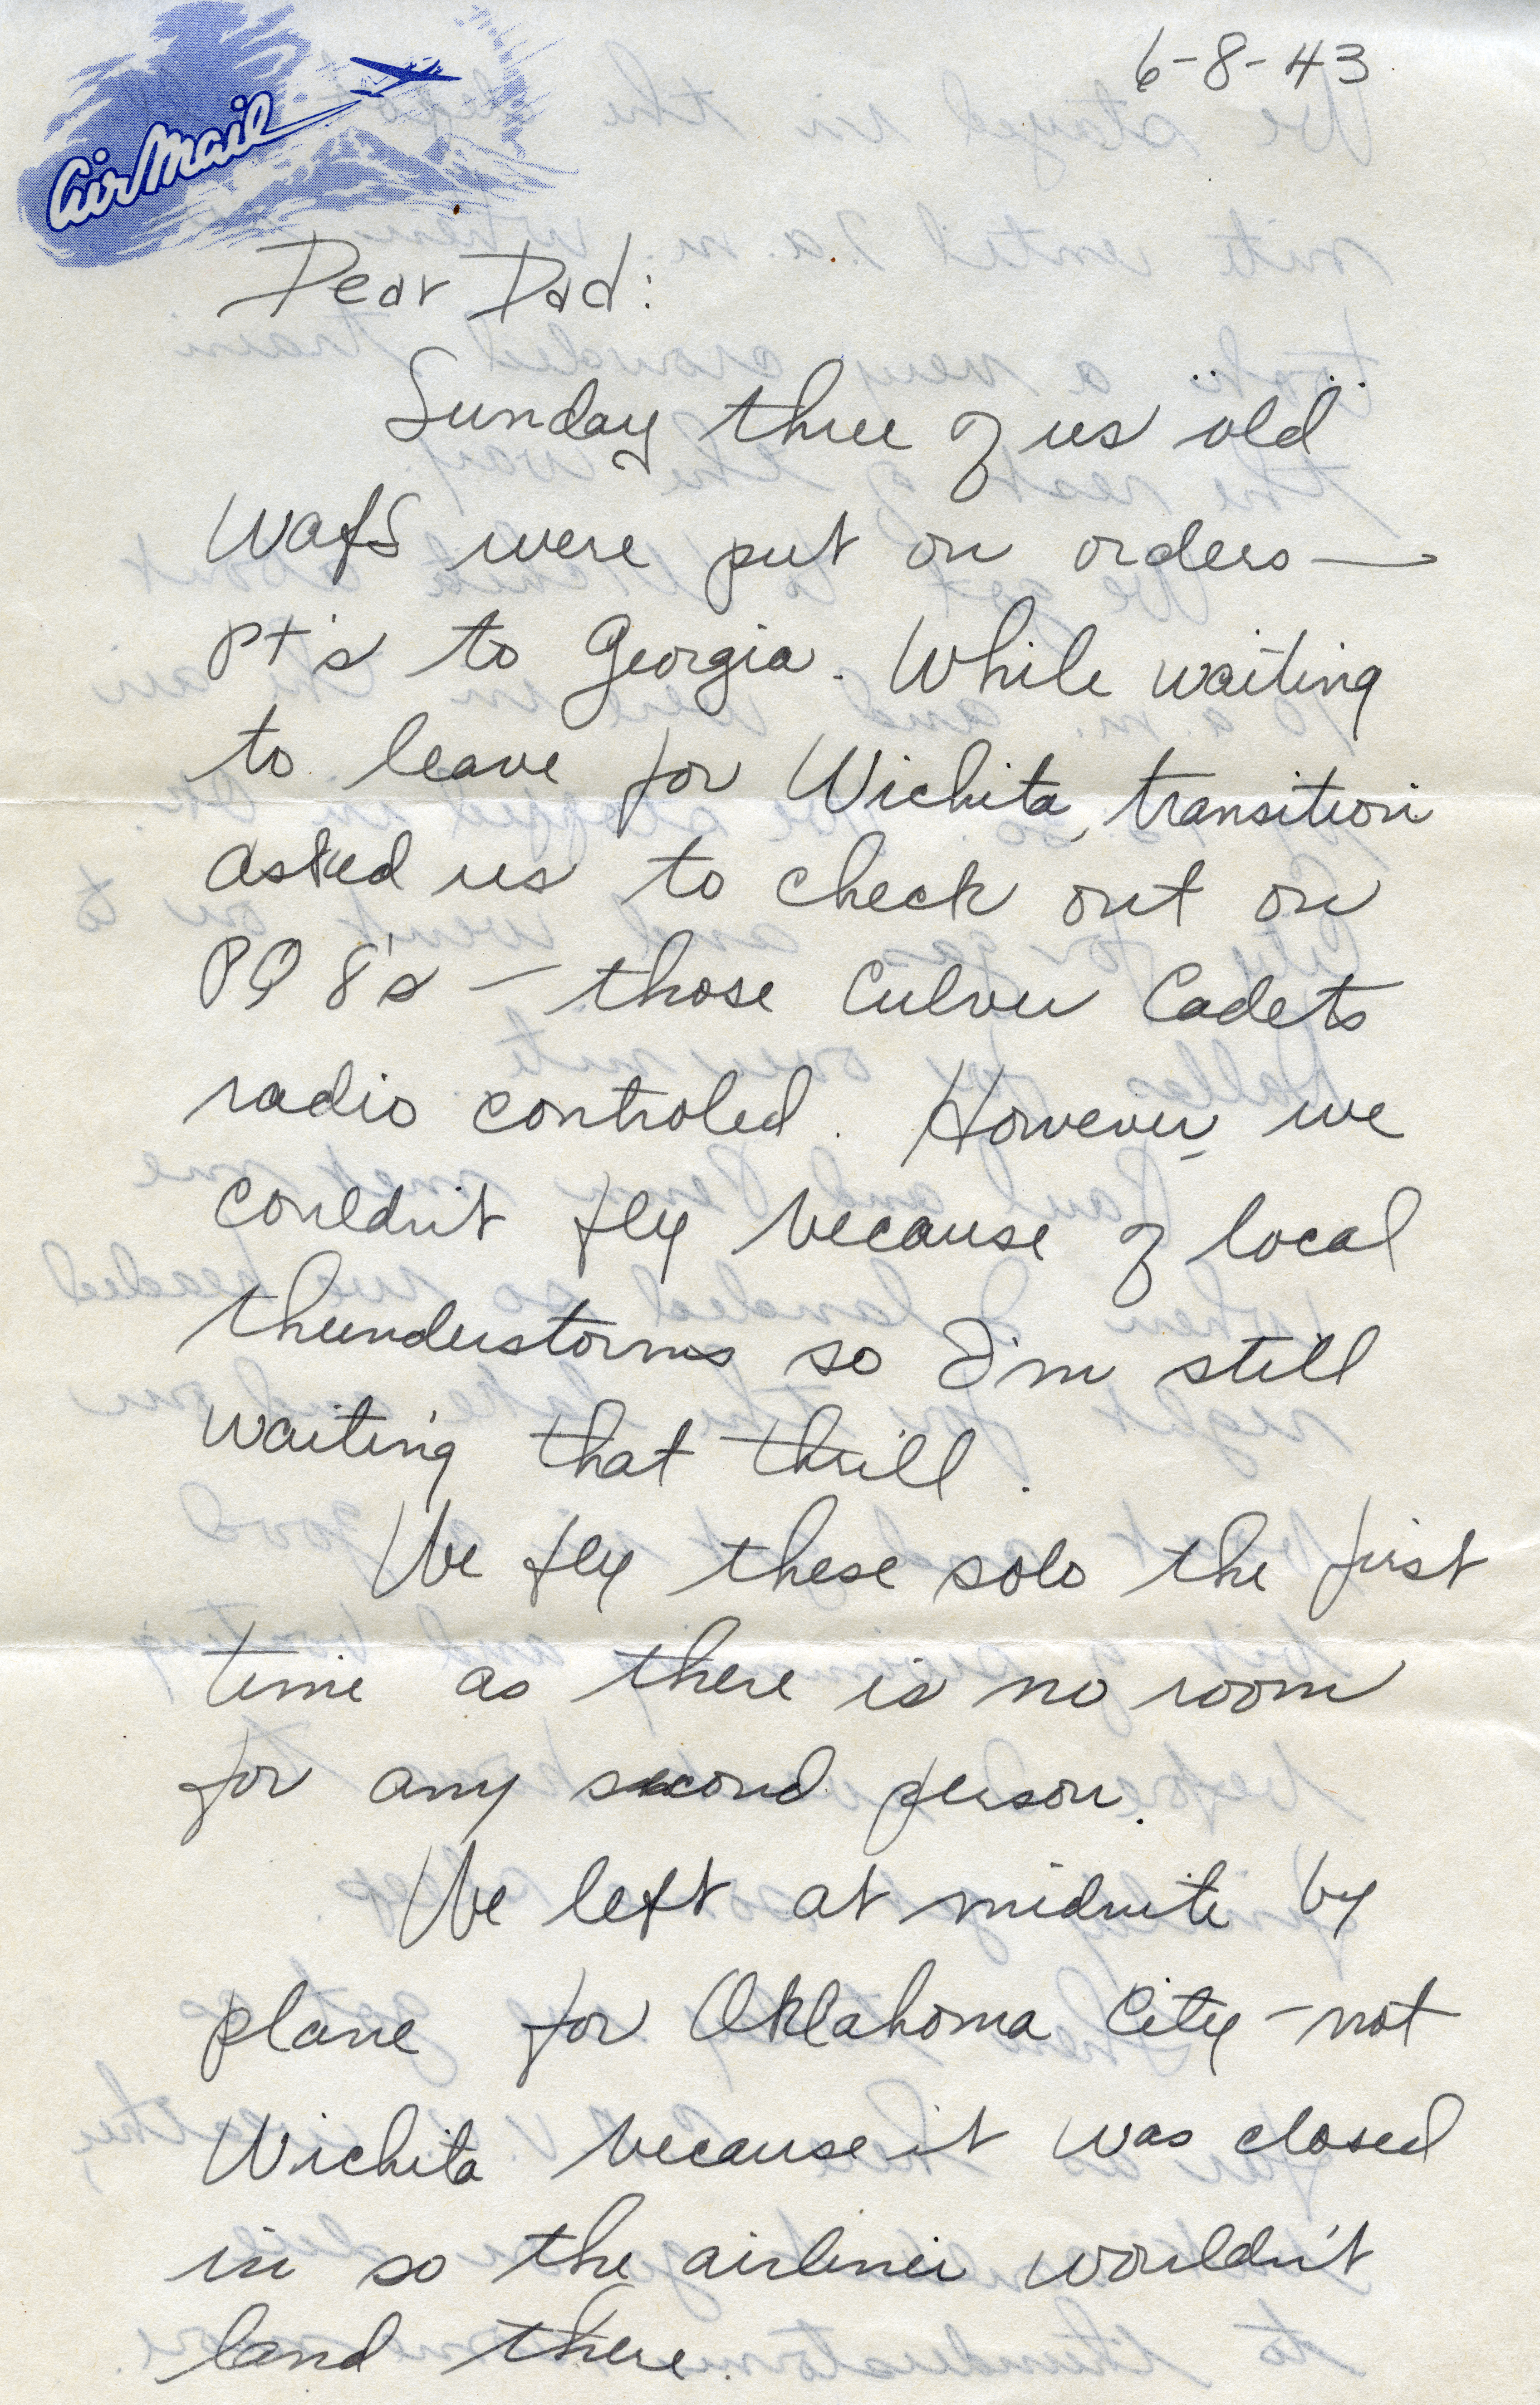 6-8-43
Air Mail
Dear Dad:
Sunday three of us "old"
WAfS were put on orders —
PT's to Georgia. While waiting
to leave for Wichita, transition
asked us to check out on
PQ 8's — those Culver Cadets
radio controled. However we
couldn't fly because of local
thunderstorms so I'm still
waiting that thrill.
We fly these solo the first
time as there is no room
for any second person.
We left at midnite by
plane for Oklahoma City — not
Wichita because it was closed
in so the airliner wouldn't
land there.